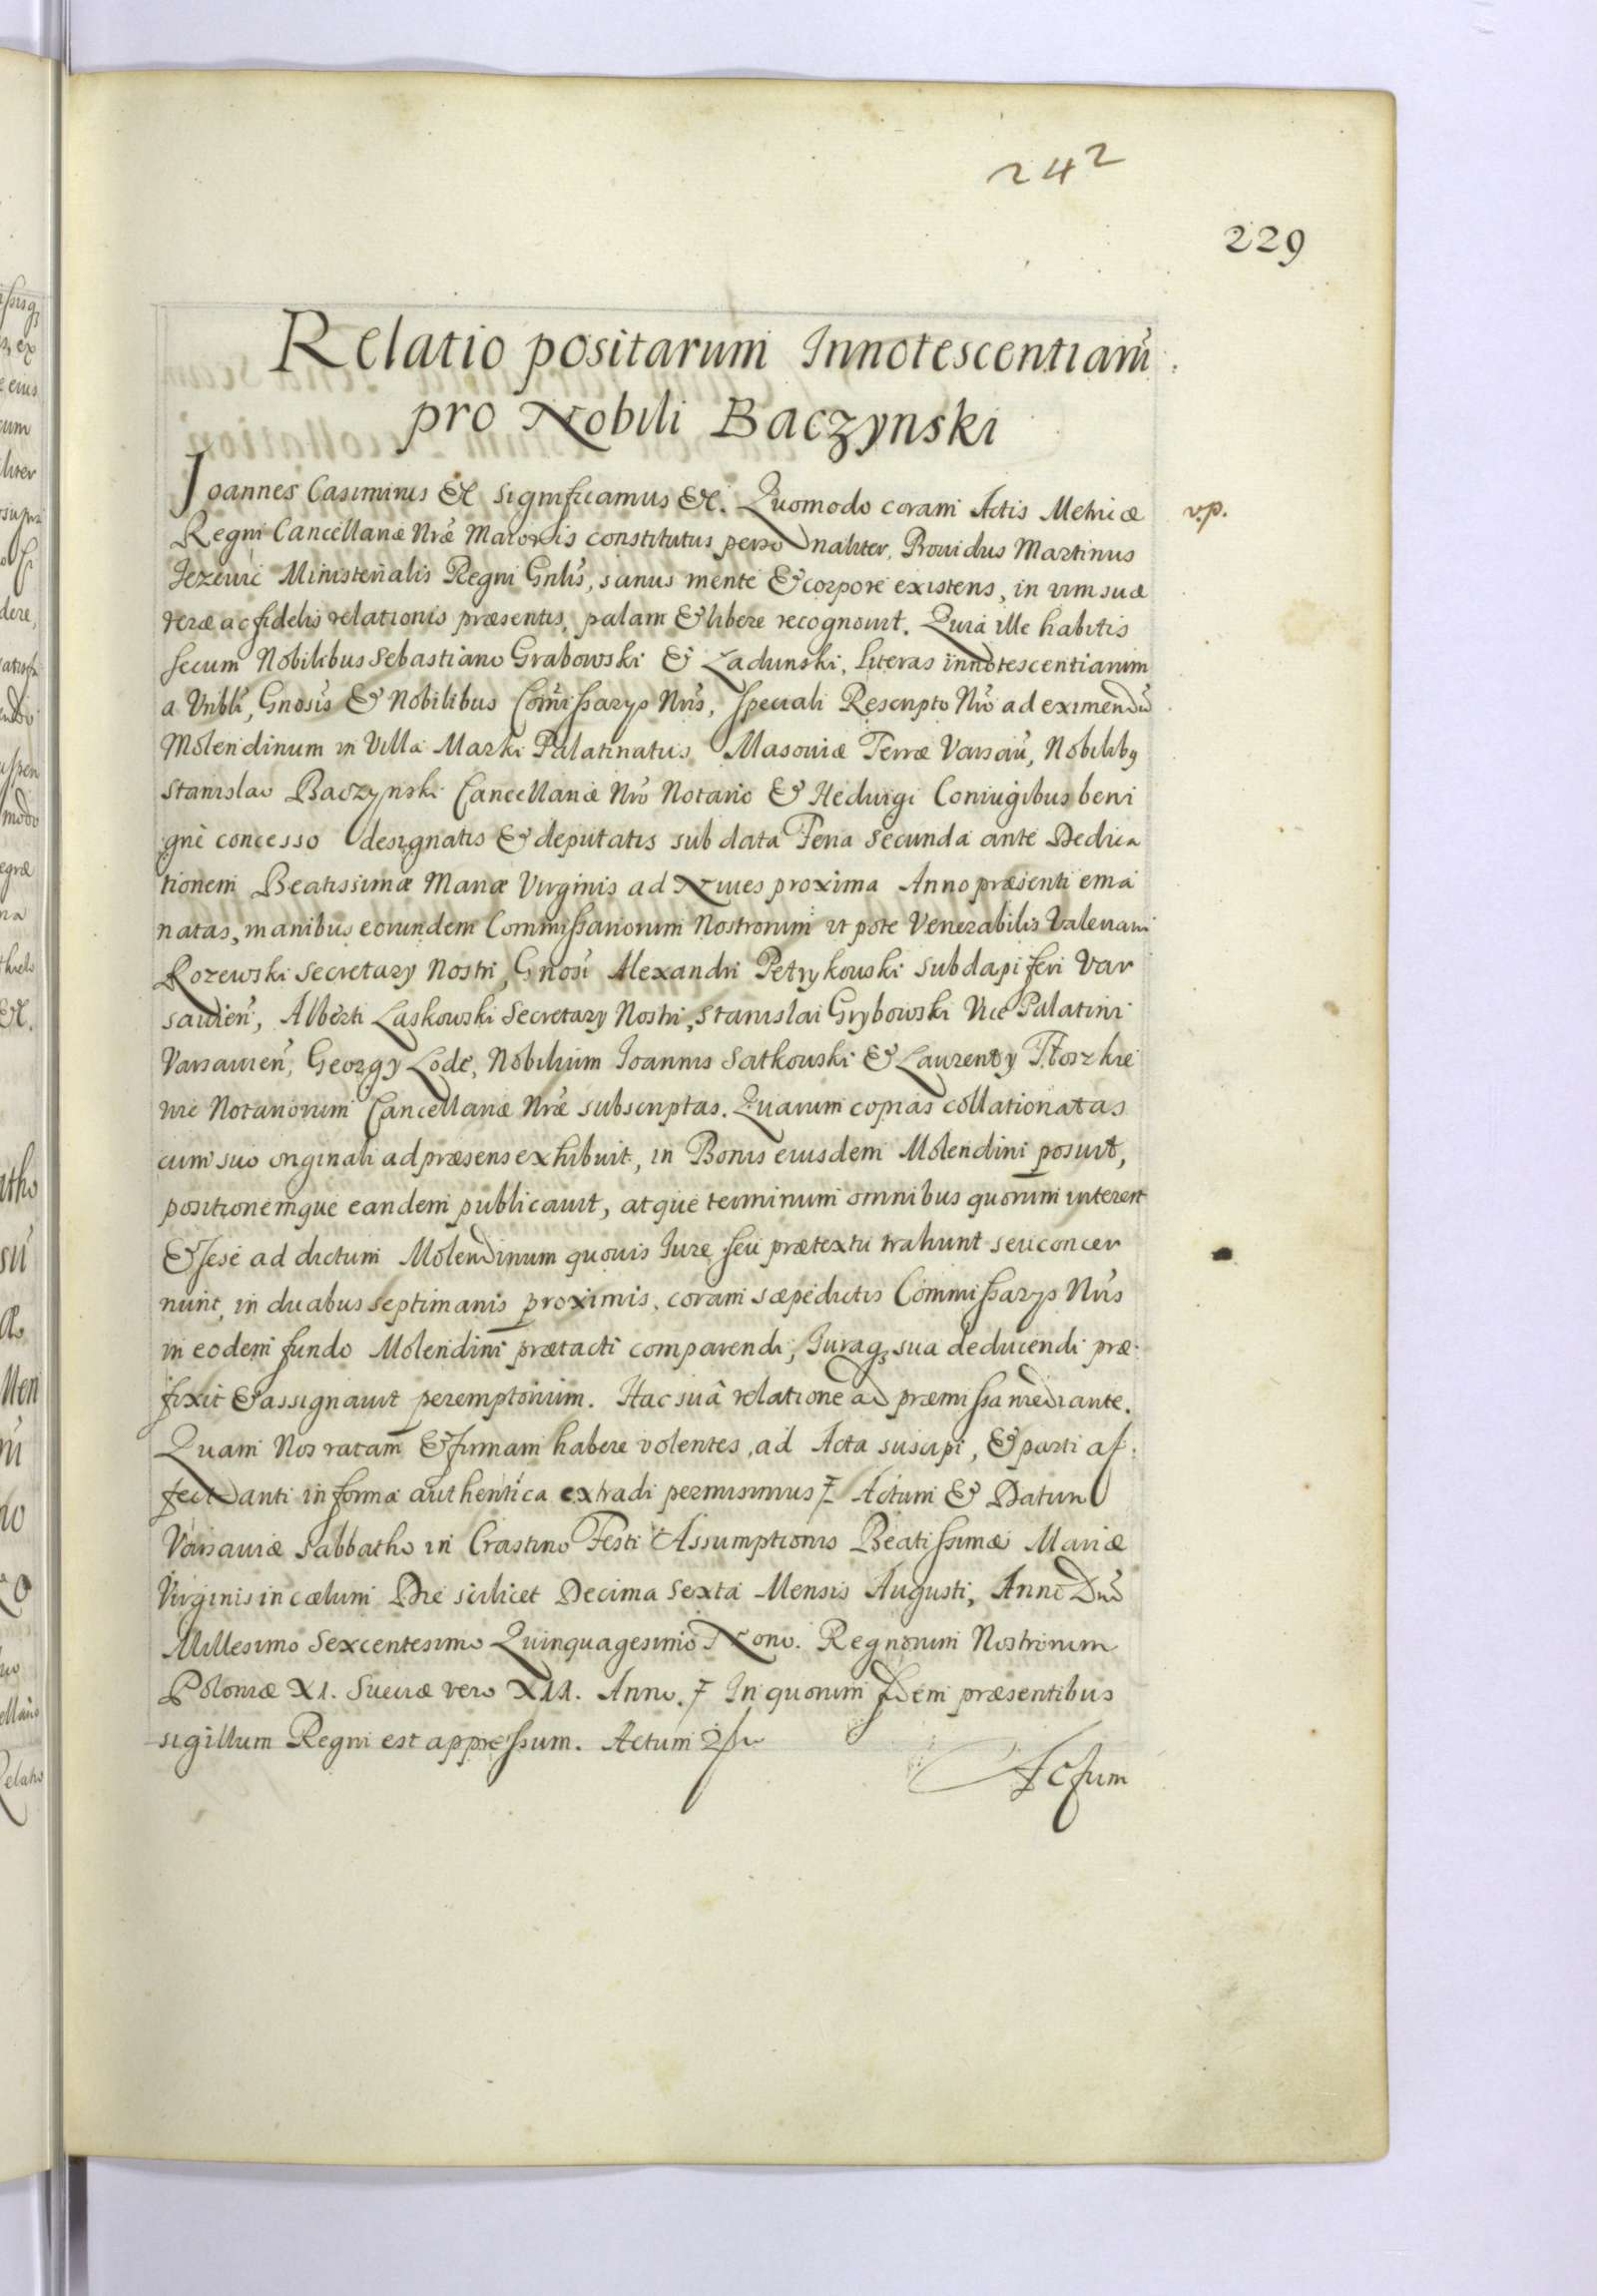 242
229
Relatio positarum Innotescentiarũ
pro Nobili Baczynski
Joannes Casimirus &c significamus &c. Quomodo coram Actis Metricæ
v.p.
Regni Cancellariæ Nræ Maioris constitutus personaliter, Prouidus Martinus
Jezewic Ministerialis Regni Gnlis, sanus mente & corpore existens, in vim suæ
veræ ac fidelis relationis præsentis, palam & libere recognouit. Quia ille habitis
secum Nobilibus Sebastiano Grabowski & Ladunski, literas innotescentiarum
a Vnbli, Gnosis & Nobilibus Com̃issarys Nris, speciali Rescripto Nro ad eximendũ
Molendinum in Villa Marki Palatinatus Masouiæ Terræ Varsau, Nobilibq
Stanislao Baczynski Cancellariæ Nrõ Notario & Heduigi Coniugibus beni
gne concesso designatis & deputatis sub data Feria Secunda ante Dedica
tionem Beatissimæ Mariæ Virginis ad Niues proxima Anno præsenti ema
natas, manibus eorundem Commissariorum Nostrorum vt pote Venerabilis Valeriani
Rozewski Secretary Nostri, Gnosi Alexandri Petrykouski Subdapiferi Var
sauien, Alberti Laskowski Secretary Nostri, Stanislai Grybowski Vice Palatini
Varsauien, Georgy Lode, Nobilium Joannis Satkouski & Laurenty Tłoszkie
wic Notariorum Cancellariæ Nræ subscriptas. Quarum copias collationatas
cum suo originali ad præsens exhibuit, in Bonis eiusdem Molendini posuit,
positionemque eandem publicauit, atque terminum omnibus quorum interent
& sese ad dictum Molendinum quouis Jure seu prætextu trahunt seu concer
nunt, in duabus septimanis proximis, coram sæpedictis Commissarys Nris
in eodem fundo Molendini prætacti comparendi, Juraq, sua deducendi præ:
fixit & assignauit peremptorium. Hac suâ relatione ad præmissa mediante.
Quam Nos ratam & firmam habere volentes, ad Acta suscipi, & parti af:
fectanti in forma authentica extradi permisimus Actum & Datum
Varsauiæ Sabbatho in Crastino Festi Assumptionis Beatissimæ Mariæ
Virginis in cælum Die scilicet Decima Sexta Mensis Augusti, Anno Dnĩ
Millesimo Sexcentesimo Quinquagesimo Nono. Regnorum Nostrorum
Poloniæ XI. Sueciæ vero XII. Anno. In quorum fidem præsentibus
sigillum Regni est appressum. Actum
Actum